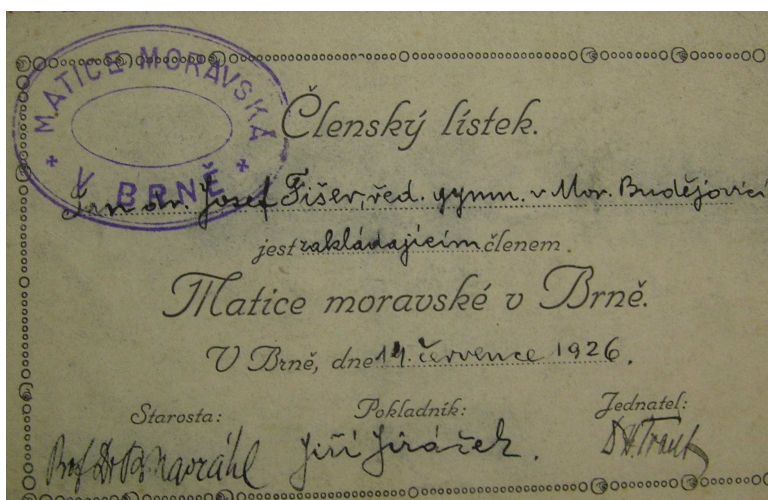 MATICE MORAVSKÁ
V BRNĚ
Členský lístek.
Pan dr. Josef Fišer, řed. gymn. v Mor. Budějovicí
jest zakládajícím členem
Matice moravské v Brně.
V Brně, dne 14. července 1926.
Starosta: Pokladník: Jednatel:
Prof Dr Navrátil Jiří Jiráček. Dr